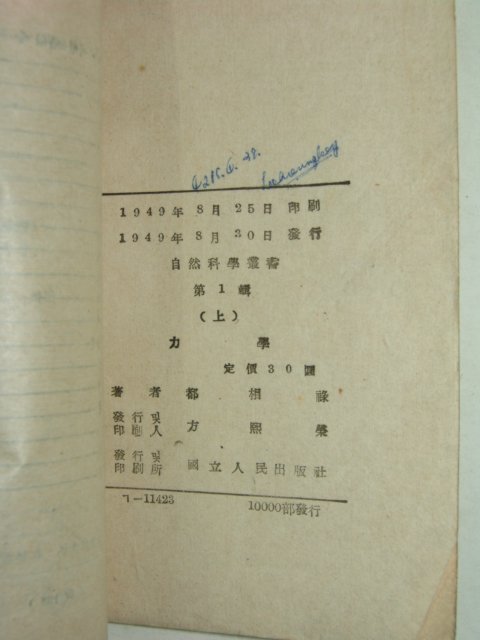 4286. 6. 29.
1949年 8月 25日 印刷
1949年 8月 30日 發行
自然科學叢書
第 1 輯
(上)
力 學
定價 30 圓
著 者 都 相 祿
發行 및
印刷人 方 熙 榮
發行 및
印刷所 國立人民出版社
ㄱ-11423 10000部發行